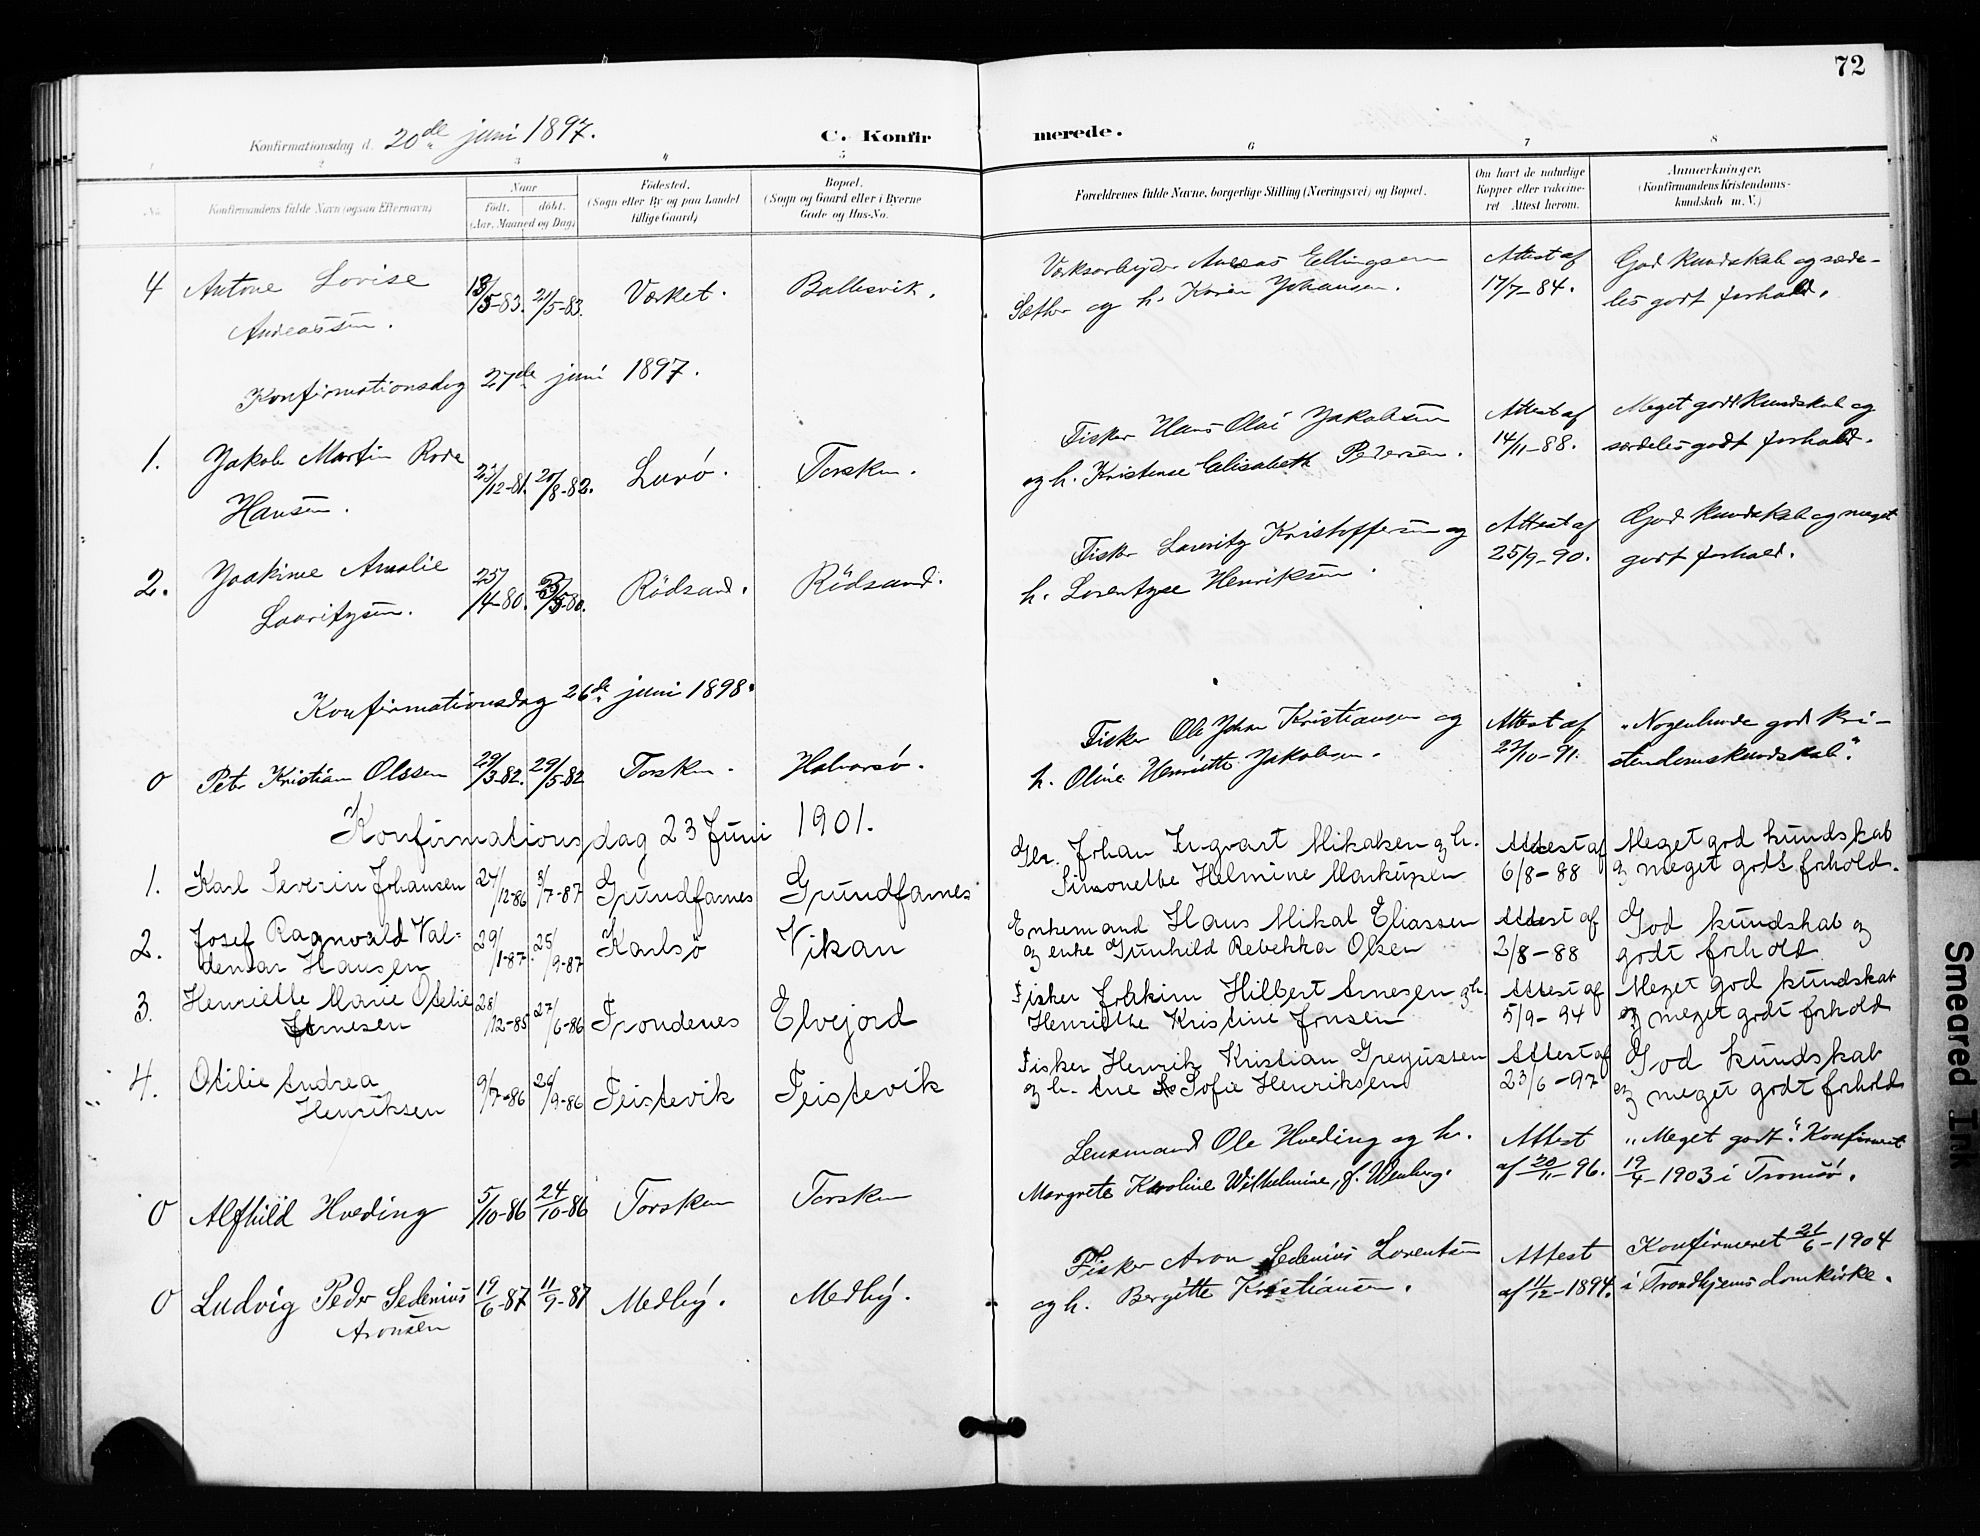 72
Konfirmationsdag d. 20de juni 1897.
C. Konfirmerede.
1 2 3 4 5 6 7 8
No.
Konfirmandens fulde Navn (ogsaa Efternavn)
Naar
født. døbt.
(Aar, Maaned og Dag)
Fødested.
(Sogn eller By og paa Landet
tillige Gaard)
Bopæl.
(Sogn og Gaard eller i Byerne
Gade og Hus-No.
Forældrenes fulde Navne, borgerlige Stilling (Næringsvei) og Bopæl.
Om havt de naturlige
Kopper eller vakcine-
ret Attest herom.
Anmærkninger.
(Konfirmandens Kristendoms-
kundskab m. V.)
4 Antone Lovise
Andreassen.
13/5-83. 21/5-83.
Værket.
Ballesvik.
Værksarbeyder Andreas Ellingsen
Sæther og h. Karen Johansen.
Attest af
17/7-84.
God kundskab og særde-
les godt forhold.
Konfirmationsdag 27de juni 1897.
1. Jakob Martin Rode
Hansen.
23/12-81. 20/8-82.
Lurø.
Torsken.
Fisker Hans Olai Jakobsen
og h. Kristense Elisabeth Pedersen.
Attest af
14/11-88.
Meget godt kundskab og
særdeles godt forhold.
2. Joakime Amalie
Lauritzsen.
25/4-80. 23/5-80.
Rødsand.
Rødsand.
Fisker Lauritz Kristoffersen og
h. Lorentze Henriksen.
Attest af
25/9-90.
God kundskab og meget
godt forhold.
Konfirmationsdag 26de juni 1898.
0 Peter Kristian Olssen
29/3-82. 29/5-82
Torsken.
Halvarsø.
Fisker Ole Johan Kristiansen og
h. Oline Henriette Jakobsen.
Attest af
22/10-91.
"Nogenlunde god kri-
stendomskundskab".
Konfirmationsdag 23 Juni 1901.
1. Karl Severin Johansen
27/12-86 3/7-87
Grundfarnes
Grundfarnes
Gbr. Johan Ingvart Mikalsen og h.
Simonette Helmine Markussen
Attest af
6/8-88
Meget god kundskab
og meget godt forhold.
2. Josef Ragnvald Val-
demar Hansen
29/1-87. 25/9-87
Karlsø
Vikan
Enkemand Hans Mikal Eliassen
og enke Gunhild Rebekka Olsen
Attest af
2/8-88
God kundskab og
godt forhold
3. Henriette Marie Otelie
Arnesen
28/12-85 27/6-86
Trondenes
Elvejord
Fisker Joakim Hilbert Arnesen og h.
Henriette Kristine Jonsen
Attest af
5/9-94
Meget god kundskab
og meget godt forhold
4. Otilie Andrea
Henriksen
9/7-86 29/9-86
Teistevik
Teistevik
Fisker Henrik Kristian Gregussen
og h. Ane Sofie Henriksen
Attest af
23/6-97
God kundskab
og meget godt forhold
0 Alfhild Hveding
5/10-86 24/10-86
Torsken
Torsken
Lensmand Ole Hveding og h.
Margrete Karoline Wilhelmine, f. Wenberg.
Attest
af 20/11-96.
"Meget godt". Konfirmeret
19/4-1903 i Tromsø.
0 Ludvig Peder Sedenius
Aronsen
19/6-87 11/9-87
Medby.
Medby.
Fisker Aron Sedenius Lorentsen
og h. Bergitte Kristiansen.
Attest
af 11/12-1894.
Konfirmeret 21/6-1904
i Trondhjems domkirke.
Smeared Ink